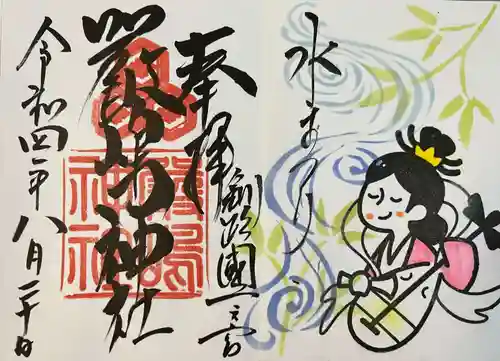 水まつり
奉拝
釧路國一之宮
嚴島神社
令和四年八月二十日